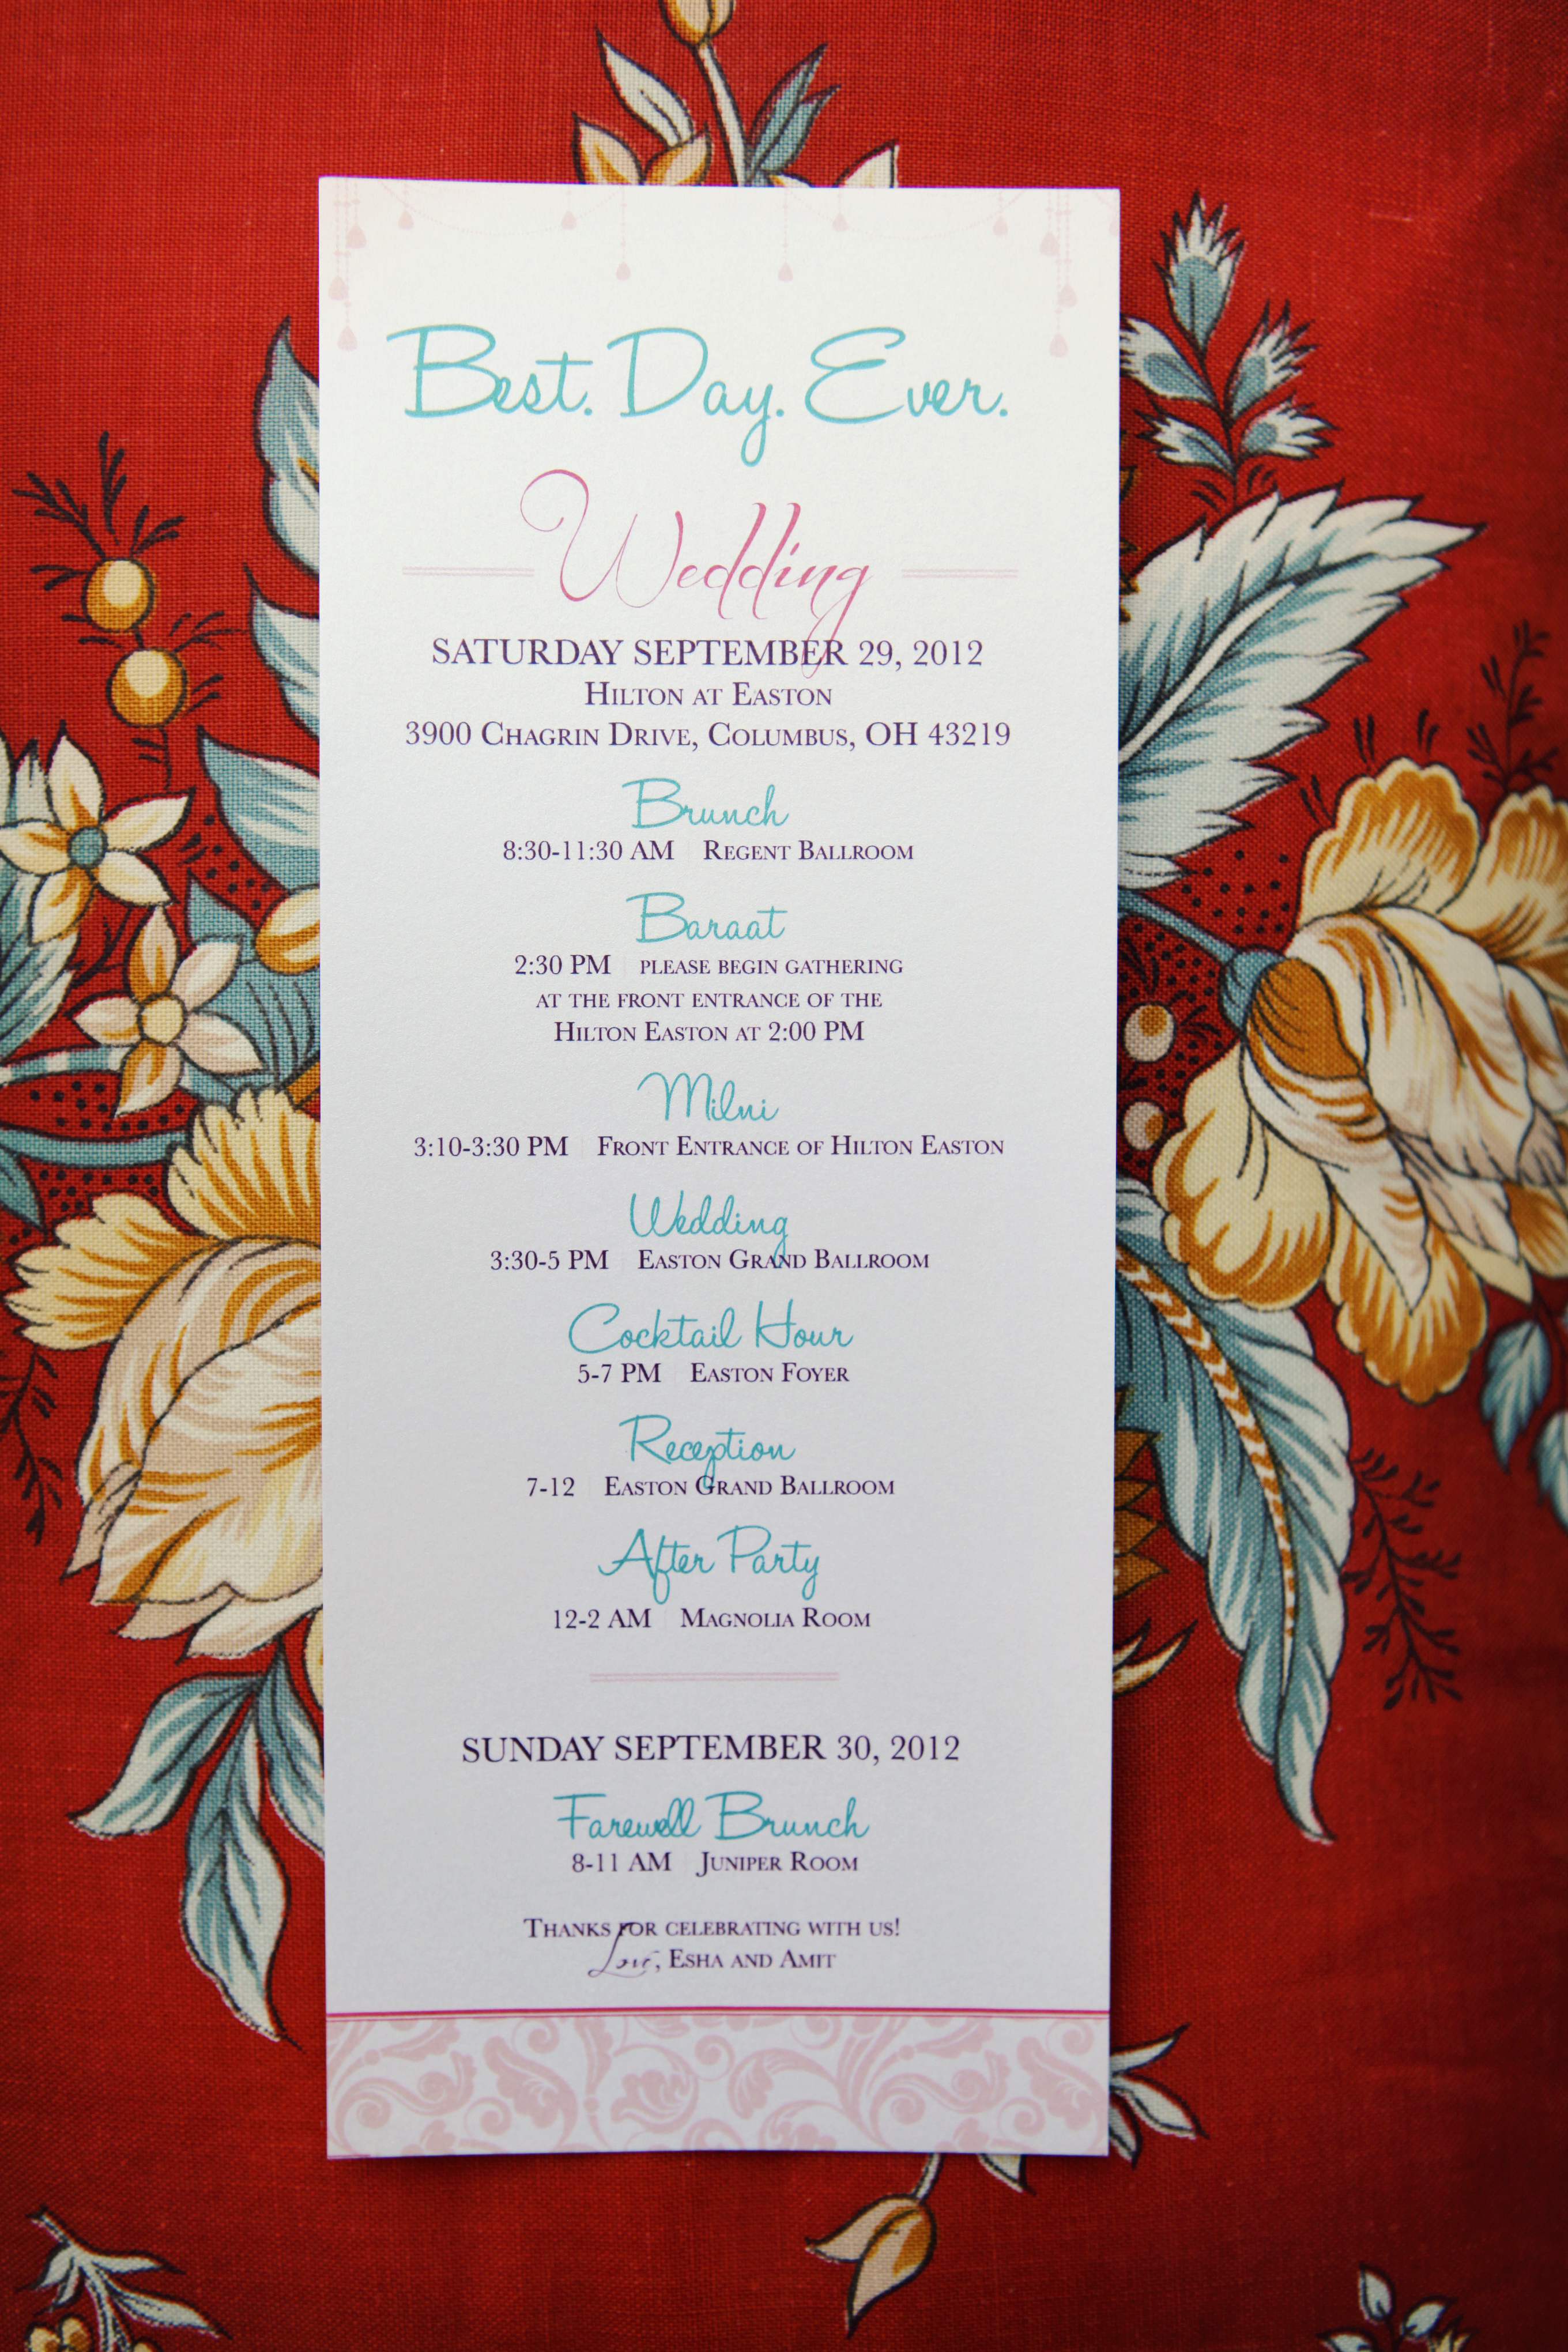 Best. Day. Ever.
Wedding
SATURDAY SEPTEMBER 29, 2012
HILTON AT EASTON
3900 CHAGRIN DRIVE, COLUMBUS, OH 43219
Brunch
8:30-11:30 AM | REGENT BALLROOM
Baraat
2:30 PM | PLEASE BEGIN GATHERING
AT THE FRONT ENTRANCE OF THE
HILTON EASTON AT 2:00 PM
Milni
3:10-3:30 PM | FRONT ENTRANCE OF HILTON EASTON
Wedding
3:30-5 PM | EASTON GRAND BALLROOM
Cocktail Hour
5-7 PM | EASTON FOYER
Reception
7-12 | EASTON GRAND BALLROOM
After Party
12-2 AM | MAGNOLIA ROOM
SUNDAY SEPTEMBER 30, 2012
Farewell Brunch
8-11 AM | JUNIPER ROOM
THANKS FOR CELEBRATING WITH US!
Love, ESHA AND AMIT